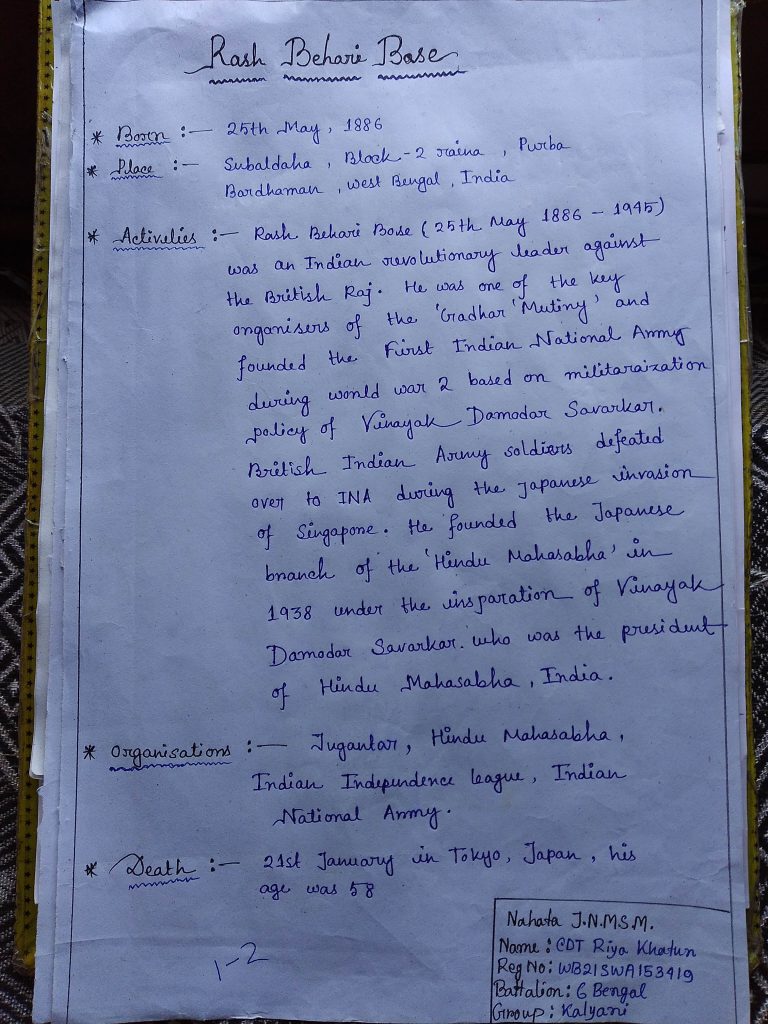 Rash Behari Bose
* Born :— 25th May, 1886
* Place :— Subaldaha, Block-2 raina, Purba
Bardhaman, west Bengal, India
* Activelies :— Rash Behari Bose (25th May 1886 – 1945)
was an Indian revolutionary leader against
the British Raj. He was one of the key
organisers of the 'Gadhar 'Mutiny' and
founded the First Indian National Army
during world war 2 based on militaraization
policy of Vinayak Damodar Savarkar.
British Indian Army soldiers defeated
over to INA during the Japanese invasion
of Singapore. He founded the Japanese
branch of the 'Hindu Mahasabha' in
1938 under the insparation of Vinayak
Damodar Savarkar. who was the president
of Hindu Mahasabha, India.
* Organisations :— Jugantar, Hindu Mahasabha,
Indian Independence league, Indian
National Army.
* Death :— 21st January in Tokyo, Japan, his
age was 58
1-2
Nahata J.N.M.S.M.
Name: CDT Riya Khatun
Reg No: WB21SWA153419
Battalion: 6 Bengal
Group: Kalyani